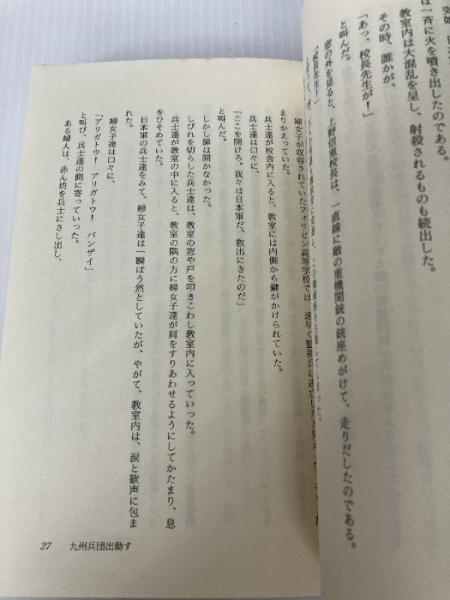 は一斉に火を噴き出したのである。
教室内は大混乱を呈し、射殺されるものも続出した。
その時、誰かが、
「あっ、校長先生が!」
と叫んだ。
窓の外を見ると、上野信重校長は、一直線に敵の重機関銃の銃座めがけて、走りだしたのである。
「校長先生!」
婦女子が収容されていたフィリピン高等学校では、逸早く監視兵は逃亡し
まりかえっていた。
兵士達が校舎内に入ると、教室には内側から鍵がかけられていた。
兵士達は口々に、
「ここを開けろ。我々は日本軍だ、救出にきたのだ」
と叫んだ。
しかし扉は開かなかった。
しびれを切らした兵士達は、教室の窓や戸を叩きこわし教室内に入っていった。
兵士達が教室の中に入ると、教室の隅の方に婦女子達が肩をすりあわせるようにしてかたまり、息
をひそめていた。
日本軍の兵士達をみて、婦女子達は一瞬ぼう然としていたが、やがて、教室内は、涙と歓声に包ま
れた。
婦女子達は口々に、
「アリガトウ! アリガトウ! バンザイ」
と叫び、兵士達の側に寄っていった。
ある婦人は、赤ん坊を兵士にさし出し、
27 九州兵団出動す